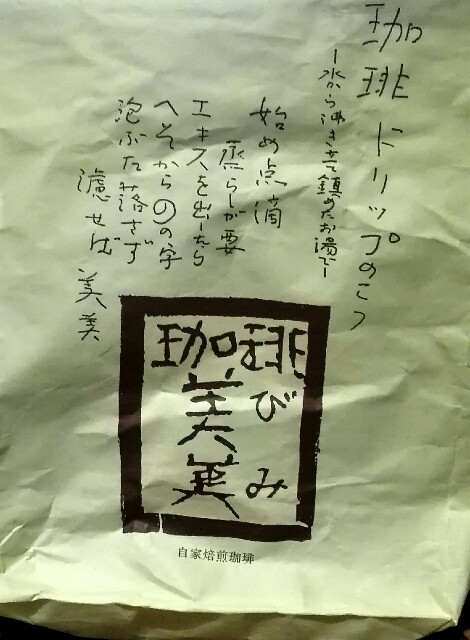 珈琲ドリップのこつ
ー水から沸きたて鎮めたお湯でー
始め点滴
蒸らしが要
エキスを出したら
へそからのの字
泡ぶた落さず
濾せば 美美
珈琲
美美
びみ
自家焙煎珈琲